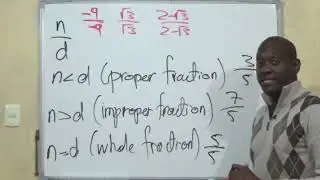 n/d -9/-9 √3/√3 2-√3/2-√3
n<d (proper fraction) 3/5
n>d (improper fraction) 7/5
n=d (whole fraction) 5/5